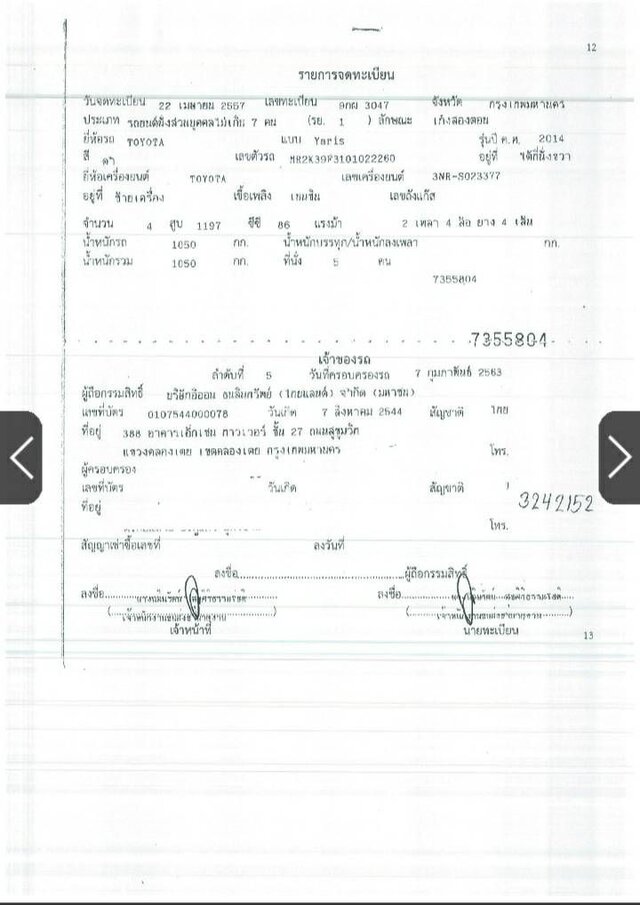 12
รายการจดทะเบียน
วันจดทะเบียน 22 เมษายน 2557 เลขทะเบียน 9กผ 3047 จังหวัด กรุงเทพมหานคร
ประเภท รถยนต์นั่งส่วนบุคคลไม่เกิน 7 คน (รย. 1 ) ลักษณะ เก๋งสองตอน
ยี่ห้อรถ TOYOTA แบบ Yaris รุ่นปี ค.ศ. 2014
สี ดำ เลขตัวรถ MR2K39F3101022260 อยู่ที่ ใต้ที่นั่งขวา
ยี่ห้อเครื่องยนต์ TOYOTA เลขเครื่องยนต์ 3NR-S023377
อยู่ที่ ซ้ายเครื่อง เชื้อเพลิง เบนซิน เลขถังแก๊ส
จำนวน 4 สูบ 1197 ซีซี 86 แรงม้า 2 เพลา 4 ล้อ ยาง 4 เส้น
น้ำหนักรถ 1050 กก. น้ำหนักบรรทุก/น้ำหนักลงเพลา กก.
น้ำหนักรวม 1050 กก. ที่นั่ง 5 คน
7355804
7355804
เจ้าของรถ
ลำดับที่ 5 วันที่ครอบครองรถ 7 กุมภาพันธ์ 2563
ผู้ถือกรรมสิทธิ์ บริษัทอิออน ธนสินทรัพย์ (ไทยแลนด์) จำกัด (มหาชน)
เลขที่บัตร 0107544000078 วันเกิด 7 สิงหาคม 2544 สัญชาติ ไทย
ที่อยู่ 388 อาคารเอ็กเชน ทาวเวอร์ ชั้น 27 ถนนสุขุมวิท
แขวงคลองเตย เขตคลองเตย กรุงเทพมหานคร โทร.
ผู้ครอบครอง
เลขที่บัตร วันเกิด สัญชาติ
ที่อยู่ 3242152
โทร.
สัญญาเช่าซื้อเลขที่ ลงวันที่
ลงชื่อ ผู้ถือกรรมสิทธิ์
ลงชื่อ ลงชื่อ
เจ้าหน้าที่ นายทะเบียน
13